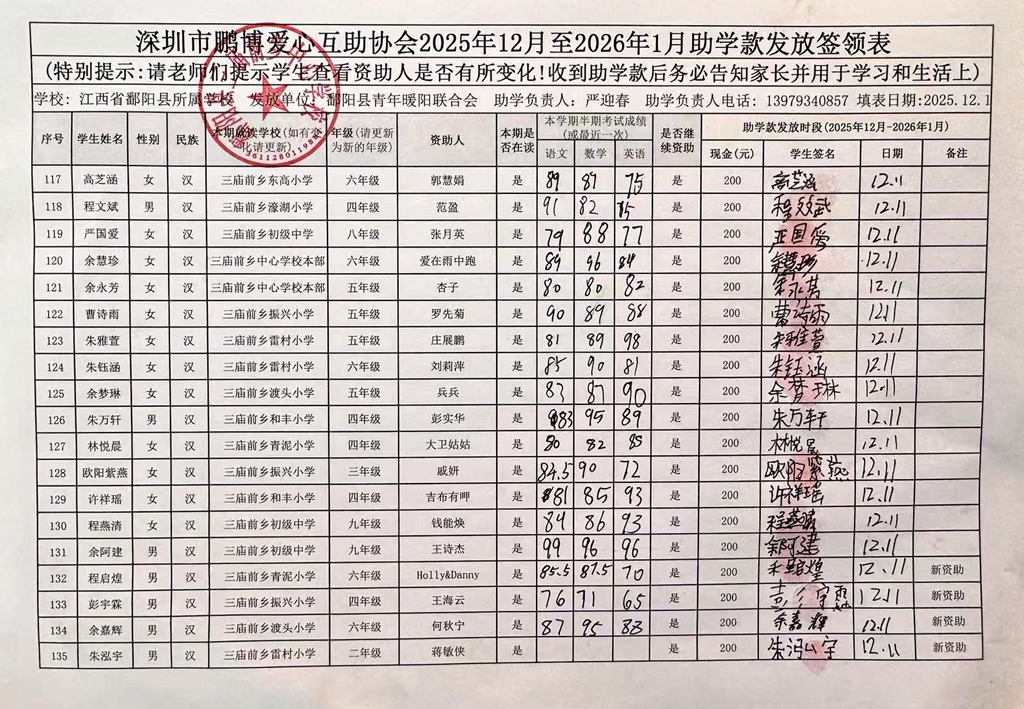 深圳市鹏博爱心互助协会2025年12月至2026年1月助学款发放签领表
(特别提示:请老师们提示学生查看资助人是否有所变化!收到助学款后务必告知家长并用于学习和生活上)
学校: 江西省鄱阳县所属学校 发放单位: 鄱阳县青年暖阳联合会 助学负责人: 严迎春 助学负责人电话: 13979340857 填表日期:2025.12.1
序号 学生姓名 性别 民族 本期就读学校(如有变化请更新) 年级(请更新为新的年级) 资助人 本期是否在读 本学期半期考试成绩(或最近一次) 语文 数学 英语 是否继续资助 助学款发放时段(2025年12月-2026年1月) 现金(元) 学生签名 日期 备注
117 高芝涵 女 汉 三庙前乡东高小学 六年级 郭慧娟 是 89 87 75 是 200 高芝涵 12.11
118 程文斌 男 汉 三庙前乡濠湖小学 四年级 范盈 是 91 82 是 200 12.11
119 严国爱 女 汉 三庙前乡初级中学 八年级 张月英 是 79 88 77 是 200 严国爱 12.11
120 余慧珍 女 汉 三庙前乡中心学校本部 六年级 爱在雨中跑 是 89 96 84 是 200 余慧珍 12.11
121 余永芳 女 汉 三庙前乡中心学校本部 五年级 杏子 是 80 80 82 是 200 余永芳 12.11
122 曹诗雨 女 汉 三庙前乡振兴小学 五年级 罗先菊 是 90 89 88 是 200 曹诗雨 12.11
123 朱雅萱 女 汉 三庙前乡雷村小学 五年级 庄展鹏 是 81 89 98 是 200 朱雅萱 12.11
124 朱钰涵 女 汉 三庙前乡雷村小学 六年级 刘莉萍 是 85 90 81 是 200 朱钰涵 12.11
125 余梦琳 女 汉 三庙前乡渡头小学 五年级 兵兵 是 83 87 90 是 200 余梦琳 12.11
126 朱万轩 男 汉 三庙前乡和丰小学 四年级 彭实华 是 83 95 89 是 200 朱万轩 12.11
127 林悦晨 女 汉 三庙前乡青泥小学 四年级 大卫姑姑 是 80 82 85 是 200 林悦晨 12.11
128 欧阳紫燕 女 汉 三庙前乡振兴小学 三年级 戚妍 是 84.5 90 72 是 200 欧阳紫燕 12.11
129 许祥瑶 女 汉 三庙前乡和丰小学 四年级 吉布有呷 是 81 85 93 是 200 许祥瑶 12.11
130 程燕清 女 汉 三庙前乡初级中学 九年级 钱能焕 是 84 86 93 是 200 程燕清 12.11
131 余阿建 男 汉 三庙前乡初级中学 九年级 王诗杰 是 99 96 96 是 200 余阿建 12.11
132 程启煌 男 汉 三庙前乡青泥小学 六年级 Holly&Danny 是 85.5 87.5 70 是 200 程启煌 12.11 新资助
133 彭宇霖 男 汉 三庙前乡振兴小学 四年级 王海云 是 76 71 65 是 200 彭宇霖 12.11 新资助
134 余嘉辉 男 汉 三庙前乡渡头小学 六年级 何秋宁 是 87 95 88 是 200 余嘉辉 12.11 新资助
135 朱泓宇 男 汉 三庙前乡雷村小学 二年级 蒋敏侠 是 是 200 朱泓宇 12.11 新资助